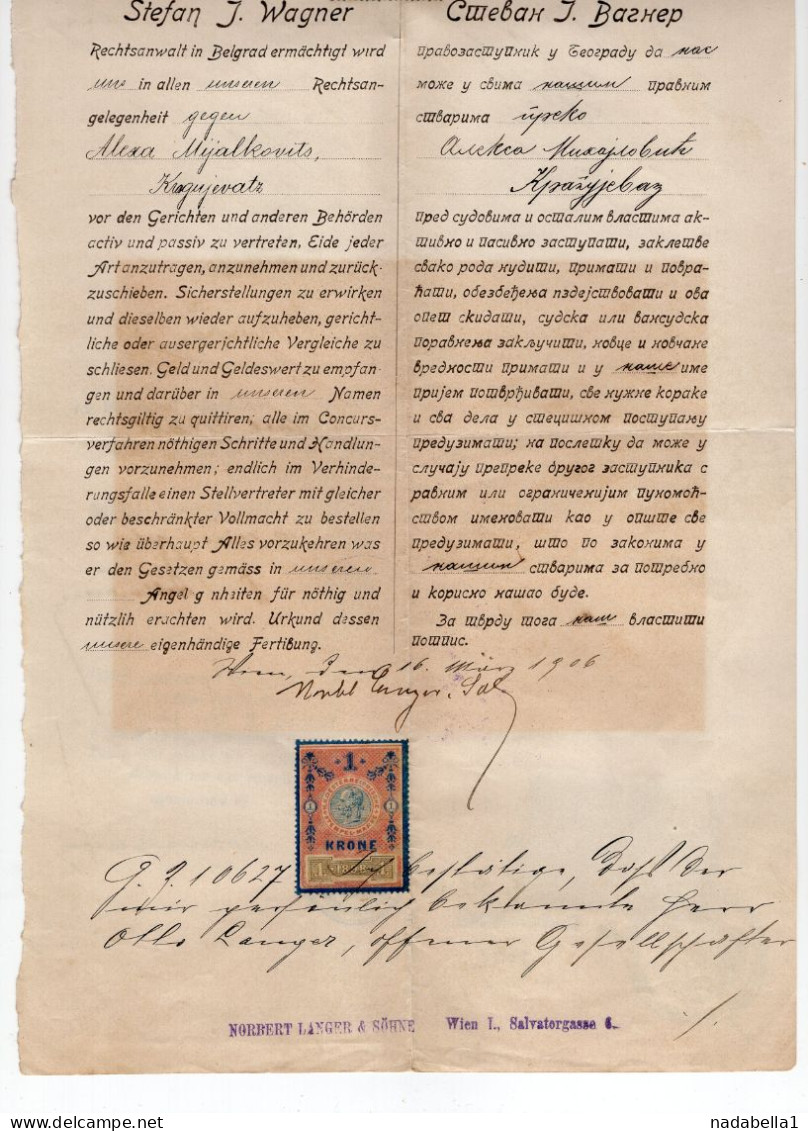 Stefan J. Wagner
Rechtsanwalt in Belgrad ermächtigt wird
uns in allen unseren Rechtsan-
gelegenheit gegen
Alexa Mijalkovits,
Kragujevatz
vor den Gerichten und anderen Behörden
activ und passiv zu vertreten, Eide jeder
Art anzutragen, anzunehmen und zurück-
zuschieben. Sicherstellungen zu erwirken
und dieselben wieder aufzuheben, gericht-
liche oder ausergerichtliche Vergleiche zu
schliesen. Geld und Geldeswert zu empfan-
gen und darüber in unseren Namen
rechtsgiltig zu quittiren; alle im Concurs-
verfahren nöthigen Schritte und Handlun-
gen vorzunehmen; endlich im Verhinde-
rungsfalle einen Stellvertreter mit gleicher
oder beschränkter Vollmacht zu bestellen
so wie überhaupt Alles vorzukehren was
er den Gesetzen gemäss in unseren
Angel g nheiten für nöthig und
nützlih erachten wird. Urkund dessen
unsere eigenhändige Fertibung.
Стеван Ј. Вагнер
правозаступник у Београду да нас
може у свима нашим правним
стварима преко
Алекса Михајловић
Крагујевац
пред судовима и осталим властима ак-
тивно и пасивно заступати, заклетве
свако рода нудити, примати и повра-
ћати, обезбеђења пздејствовати и ова
опет скидати, судска или вансудска
поравнења закључити, новце и новчане
вредности примати и у наше име
пријем потврђивати, све нужне кораке
и сва дела у стецишном поступању
предузимати; на послетку да може у
случају препреке другог заступника с
равним или ограниченијим пуномоћ-
ством именовати као у опште све
предузимати, што по законима у
нашим стварима за потребно
и корисно нашао буде.
За тврду тога наш властити
потпис.
Wien, den 16. März 1906
Norbt Langer & Söhne
1
KRONE
1 1898 1
G. Z. 10627 Ich bestätige, daß der
mir persönlich bekannte Herr
Otto Langer, öffener Gesellschafter
NORBERT LANGER & SÖHNE Wien I., Salvatorgasse 6.
./.
nadabella1